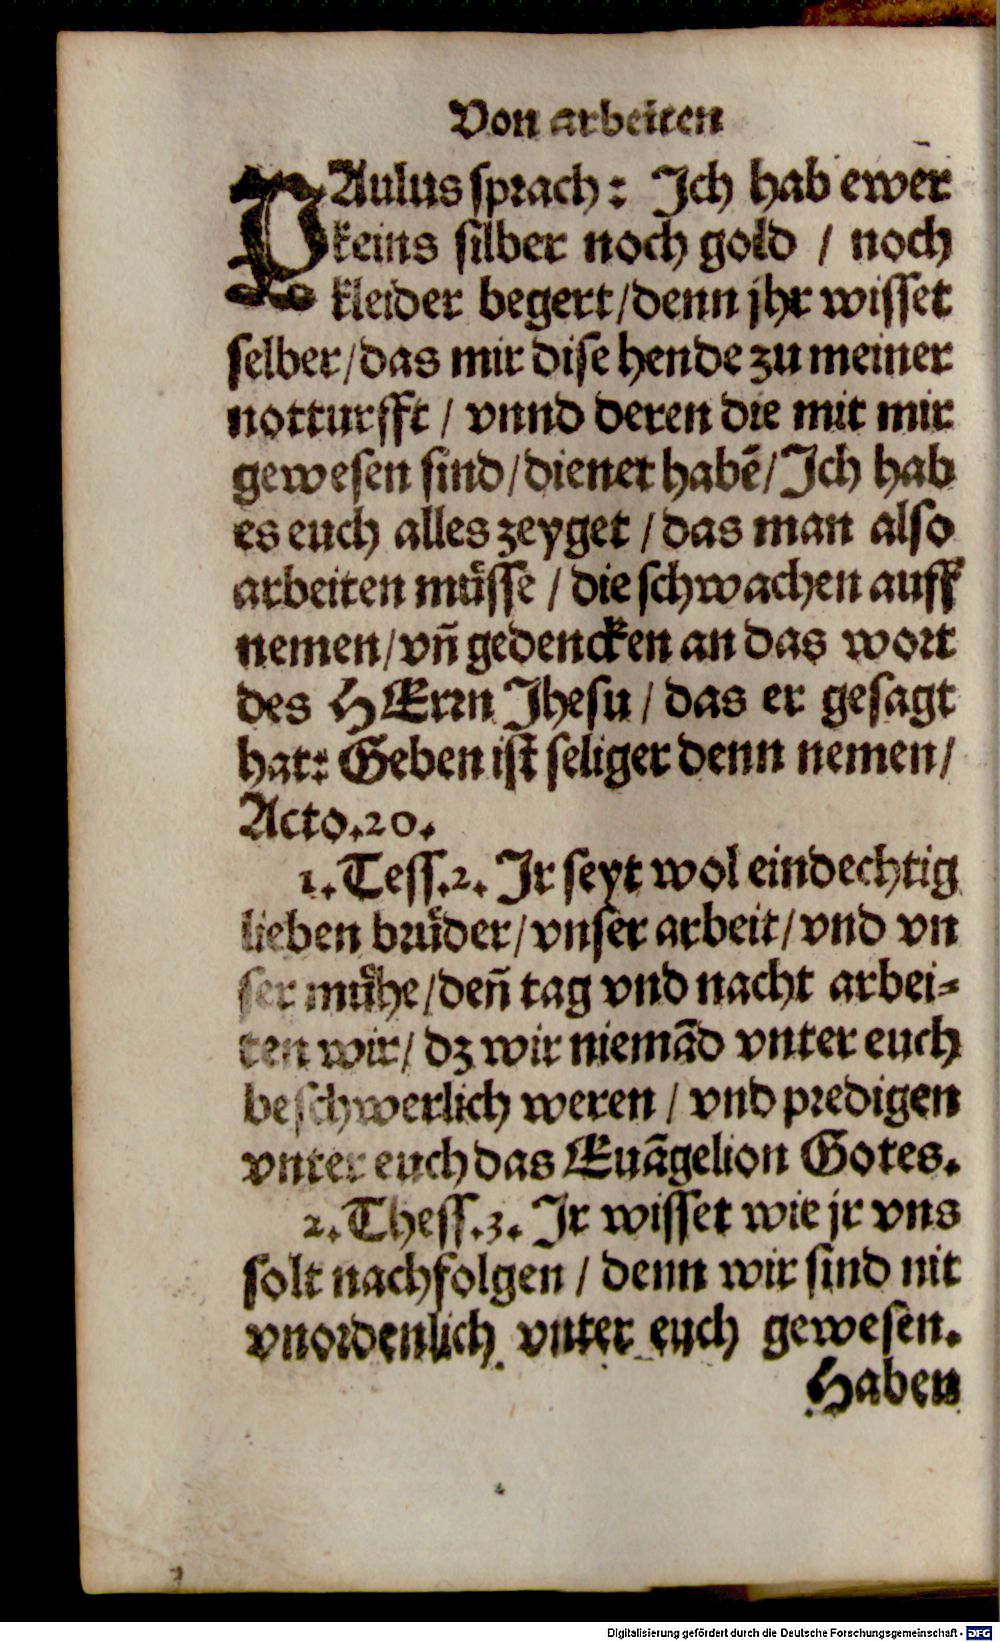 Von arbeiten
PAulus sprach: Ich hab ewer
keins silber noch gold / noch
kleider begert/denn jhr wisset
selber/das mir dise hende zu meiner
notturfft / vnnd deren die mit mir
gewesen sind/dienet habẽ/Ich hab
es euch alles zeyget / das man also
arbeiten muͤsse / die schwachen auff
nemen/vñ gedencken an das wort
des HErrn Jhesu / das er gesagt
hat: Geben ist seliger denn nemen/
Acto.20.
1. Tess.2. Ir seyt wol eindechtig
lieben bruͤder/vnser arbeit/vnd vn
ser muͤhe/deñ tag vnd nacht arbei=
ten wir/ dz wir niemãd vnter euch
beschwerlich weren / vnd predigen
vnter euch das Euãgelion Gotes.
2. Thess.3. Ir wisset wie jr vns
solt nachfolgen / denn wir sind nit
vnordenlich vnter euch gewesen.
Haben
Digitalisierung gefördert durch die Deutsche Forschungsgemeinschaft - DFG